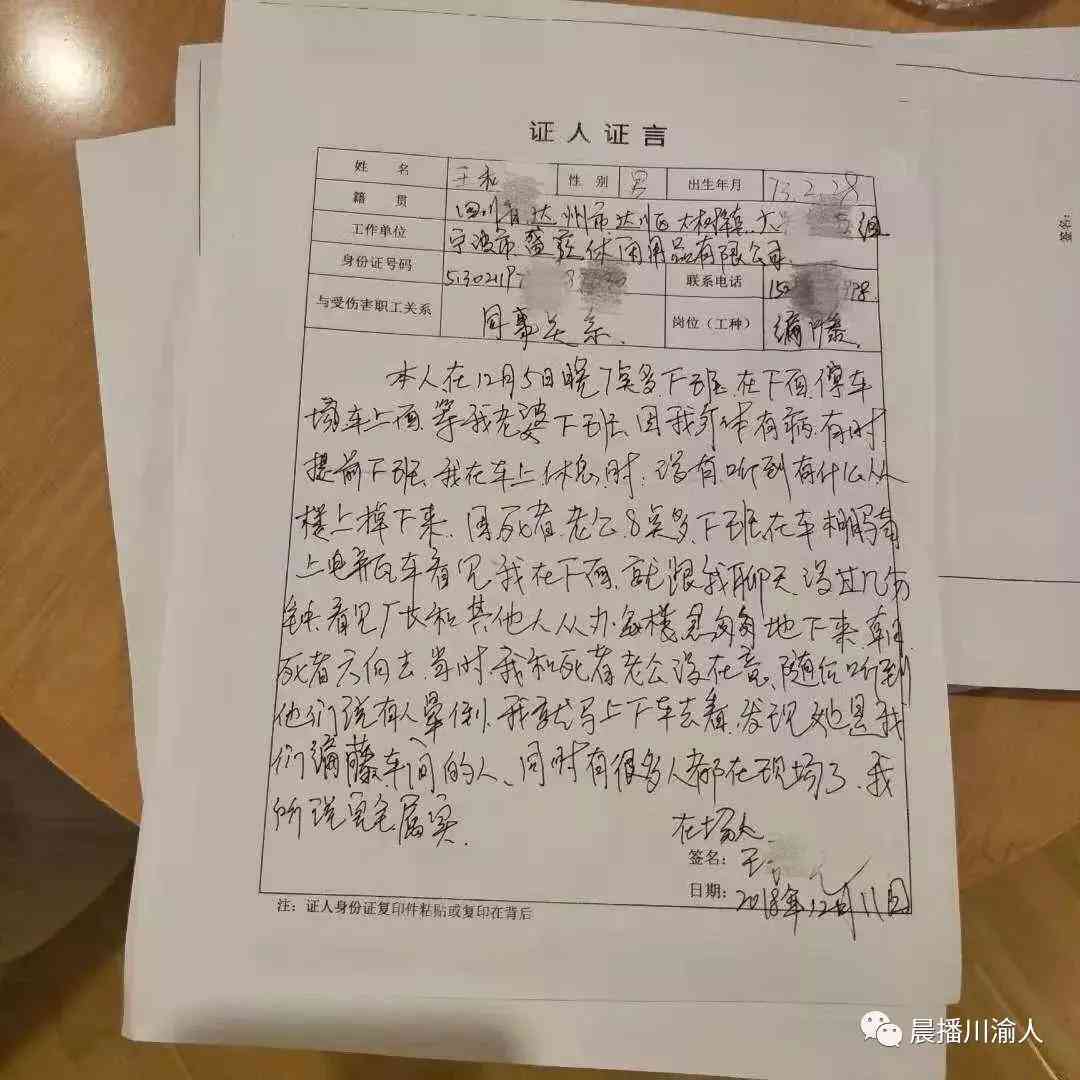 证人证言
姓 名 王和 性 别 男 出生年月 73.2.28
籍 贯 四川省达州市达川区大树镇 组
工作单位 宁波市 休闲用品有限公司
身份证号码 513021197 联系电话 15 78
与受伤害职工关系 同事关系. 岗位（工种） 编藤
本人在12月5日晚7点多下班.在下面停车
场车上面.等我老婆下班.因我身体有病.有时
提前下班.我在车上休息时.没有听到有什么从
楼上掉下来.因死者老公8点多下班.在车棚骑
上电瓶车看见我在下面.就跟我聊天.没过几分
钟.看见厂长和其他人从办公楼急匆匆地下来.朝
死者方向去.当时我和死者老公没在意.随后听到
他们说有人晕倒.我就马上下车去看.发现她是我
们编藤车间的人、同时有很多人都在现场了.我
所说完全属实.
在场人
签名：王
日期：2018年12月11日
注：证人身份证复印件粘贴或复印在背后
晨播川渝人